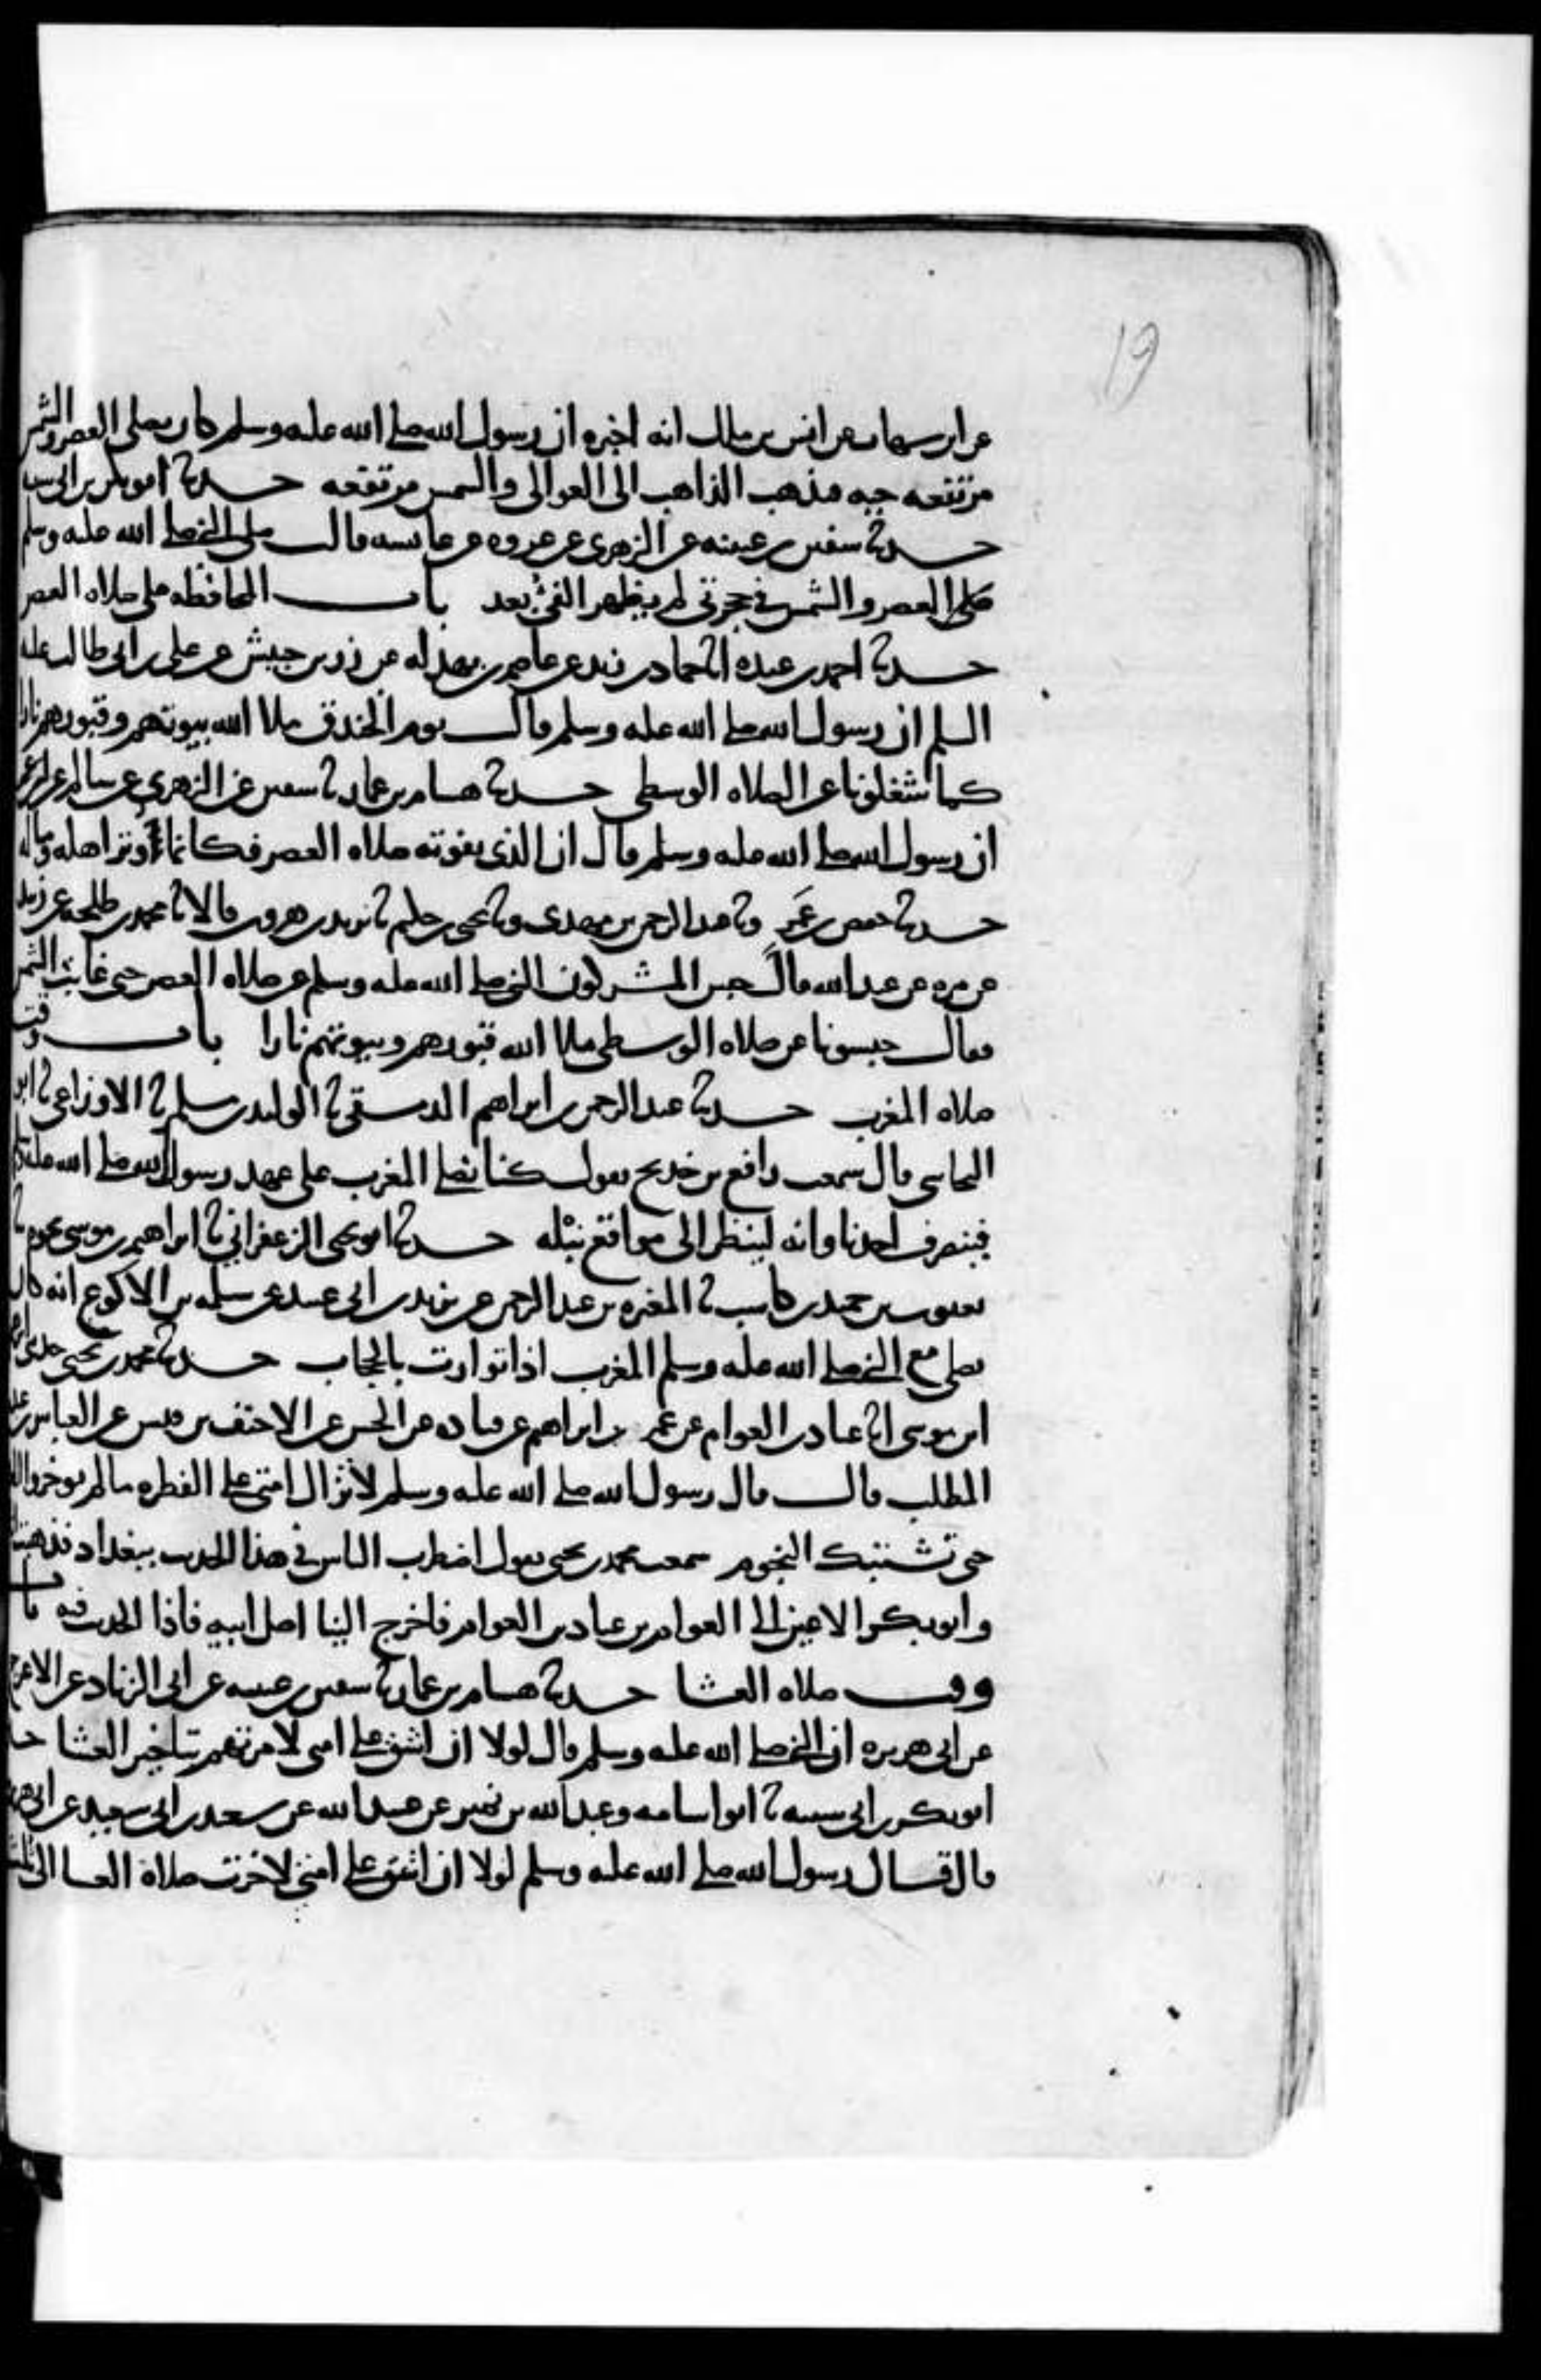 19
عن ابن شهاب عن انس بن مالك انه اخبره ان رسول الله صلى الله عليه وسلم كان يصلي العصر والشمس
مرتفعه حيه فيذهب الذاهب الى العوالي والشمس مرتفعه حدثنا ابو بكر بن ابي شيبه
حدثنا سفين بن عيينه عن الزهري عن عروه عن عائشه قالت صلى النبي صلى الله عليه وسلم
صلى العصر والشمس في حجرتي لم يظهر الفئ بعد باب المحافظه على صلاه العصر
حدثنا احمد بن عبده انا حماد بن زيد عن عاصم بن بهدله عن زر بن حبيش عن علي بن ابي طالب عليه
السلم ان رسول الله صلى الله عليه وسلم قال يوم الخندق ملا الله بيوتهم وقبورهم نارا
كما شغلونا عن الصلاه الوسطى حدثنا هشام بن عمار نا سفين عن الزهري عن سالم عن ابن عمر
ان رسول الله صلى الله عليه وسلم قال ان الذي يفوته صلاه العصر فكانما وتر اهله وماله
حدثنا حفص بن عمر نا عبد الرحمن بن مهدي ونا يحيى بن حكيم نا يزيد بن هرون قالا نا محمد بن طلحه عن زبيد
عن مره عن عبد الله قال حبس المشركون النبي صلى الله عليه وسلم عن صلاه العصر حتى غابت الشمس
فقال حبسونا عن صلاه الوسطى ملا الله قبورهم وبيوتهم نارا باب وقت
صلاه المغرب حدثنا عبد الرحمن بن ابراهيم الدمشقي نا الوليد بن مسلم نا الاوزاعي نا ابو
النجاشي قال سمعت رافع بن خديج يقول كنا نصلي المغرب على عهد رسول الله صلى الله عليه
فينصرف احدنا وانه لينظر الى مواقع نبله حدثنا ابو يحيى الزعفراني نا ابراهيم بن موسى نحوه نا
يعقوب بن حميد بن كاسب نا المغيره بن عبد الرحمن عن يزيد بن ابي عبيد عن سلمه بن الاكوع انه كان
يصلي مع النبي صلى الله عليه وسلم المغرب اذا توارت بالحجاب حدثنا محمد بن يحيى
ابن موسى انا عباد بن العوام عن عمر بن ابراهيم عن قتاده عن الحسن عن الاحنف بن قيس عن العباس بن عبد
المطلب قال قال رسول الله صلى الله عليه وسلم لا تزال امتي على الفطره ما لم يوخروا
حتى تشتبك النجوم سمعت محمد بن يحيى يقول اضطرب الناس في هذا الحديث ببغداد فذهبت انا
وابو بكر الاعين الى العوام بن عباد بن العوام فاخرج الينا اصل ابيه فاذا الحديث فيه باب
وقت صلاه العشا حدثنا هشام بن عمار نا سفين بن عيينه عن ابي الزناد عن الاعرج
عن ابي هريره ان النبي صلى الله عليه وسلم قال لولا ان اشق على امتي لامرتهم بتاخير العشا
ابو بكر بن ابي شيبه نا ابو اسامه وعبد الله بن نمير عن عبيد الله عن سعيد بن ابي سعيد عن ابي هريره
قال قال رسول الله صلى الله عليه وسلم لولا ان اشق على امتي لاخرت صلاة العشا الى ثلث